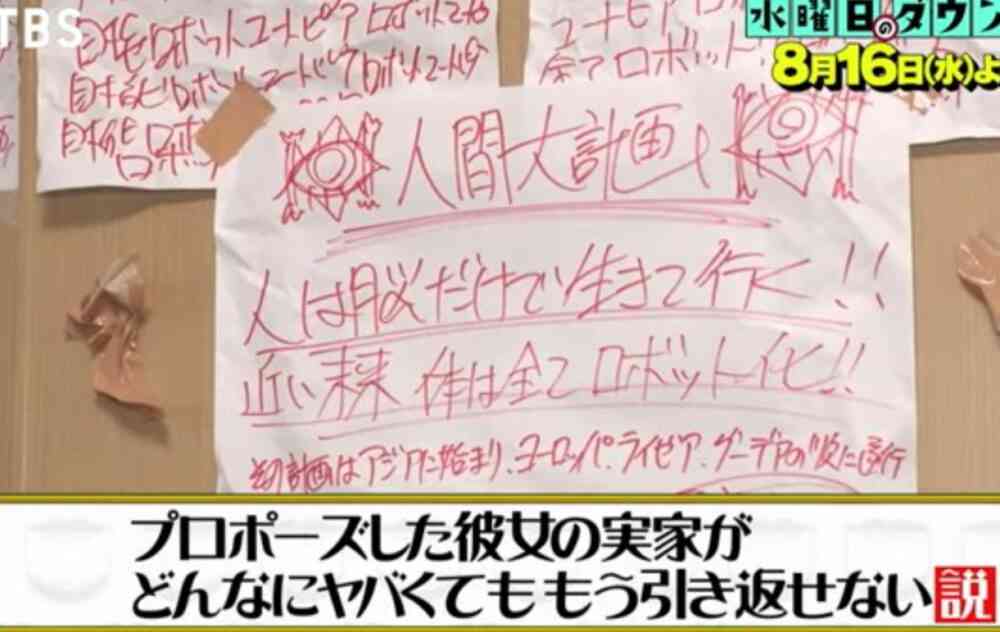 TBS
水曜日のダウン
8月16日(水)よ
自宅ロボットユートピアロボットユートピ
自立ロボットユートピアロボットユートピ
ユートピア
全てロボット
人間大計画
人は脳だけで生きて行く!!
近い未来 体は全てロボット化!!
計画はアジアに始まり、ヨーロッパ、ライゼア、
プロポーズした彼女の実家が
どんなにヤバくても もう引き返せない説